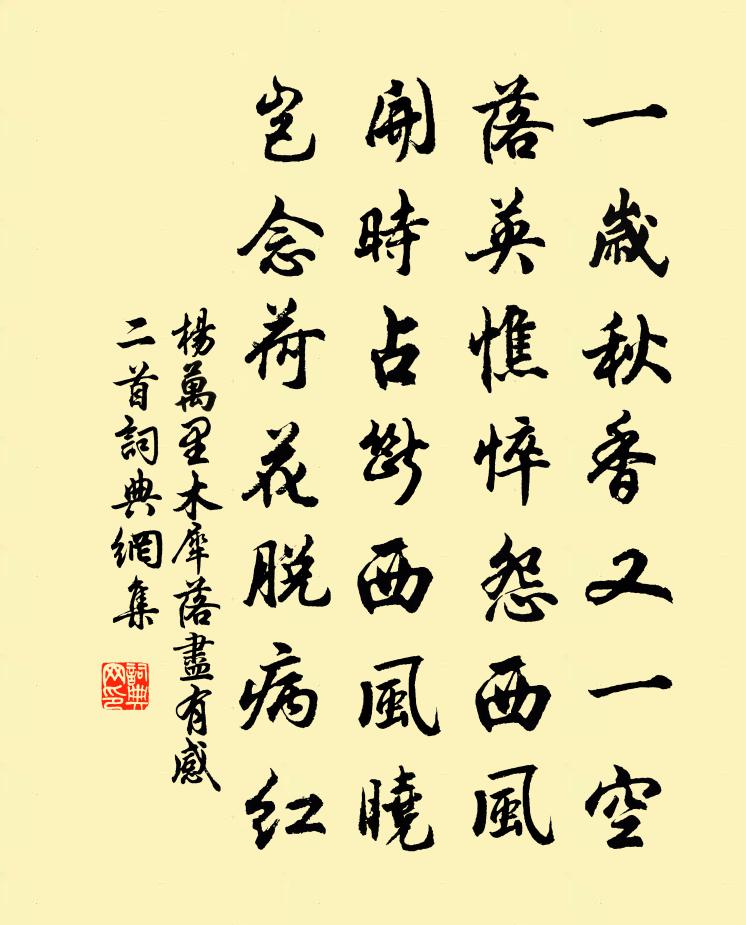 一歲秋香又一空
落英憔悴怨西風
開時占斷西風曉
豈念荷花脱病紅
楊萬里木犀落盡有感
二首詞典網集
詞典
网印